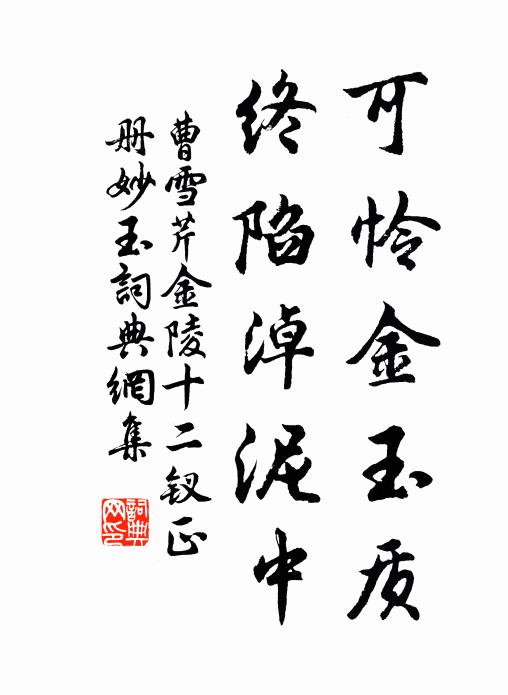 可怜金玉质
终陷淖泥中
曹雪芹金陵十二钗正
册妙玉詞典網集
詞典
网印